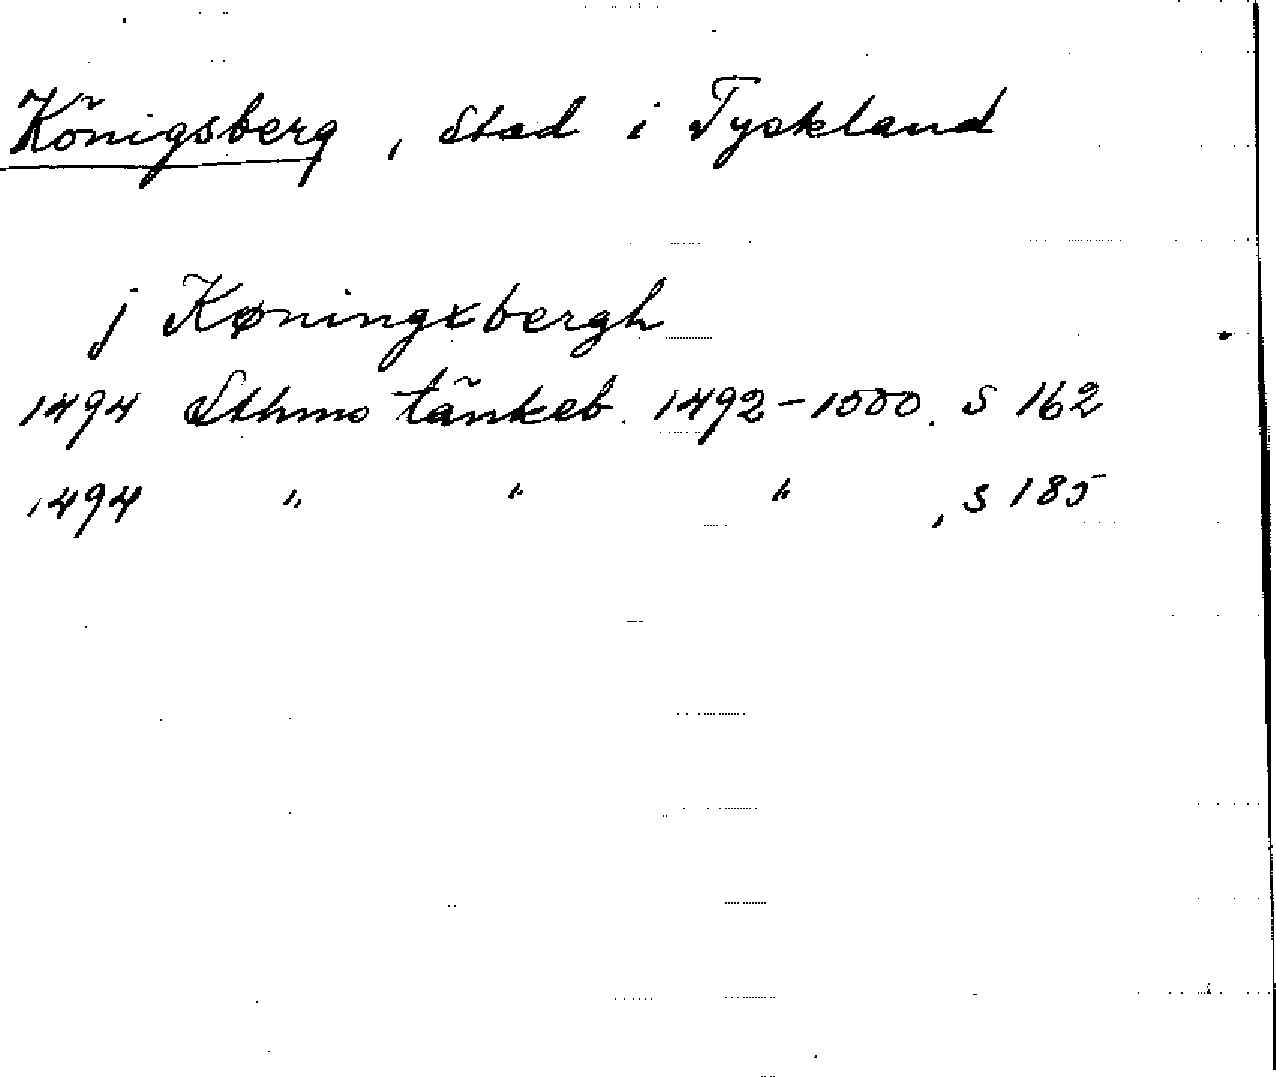 Königsberg, Stad i Tyskland
j Køningxbergh
1494 Sthms tänkeb. 1492-1500. S 162
1494 " " " , S 185